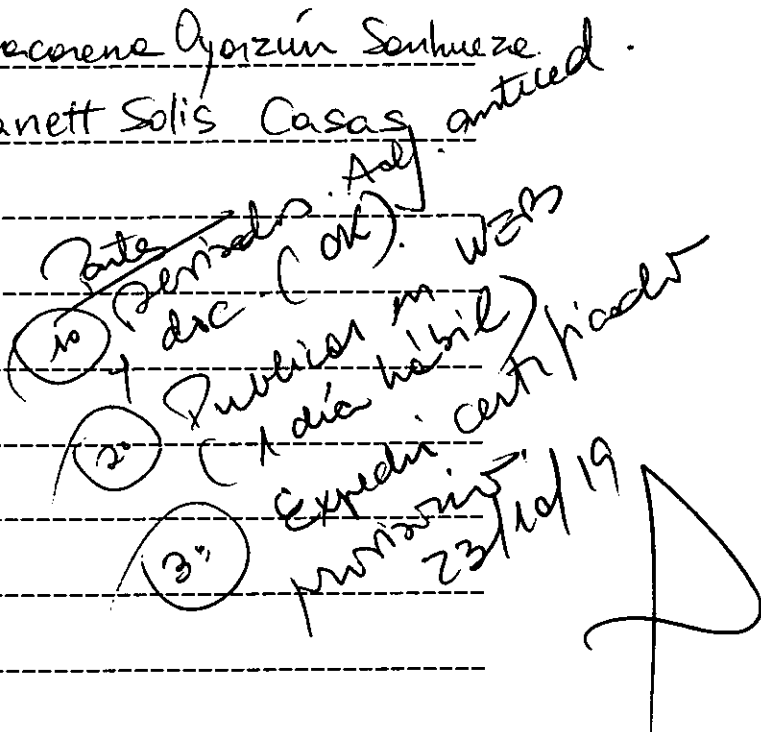 acarena Oyarzún Sanhueza.
anett Solis Casas
anteced.
1º revisados. Adj.
y doc. (OK).
2º Publicar en WEB
(1 día hábil)
3º Expedir certificado
provisorio.
23/10/19